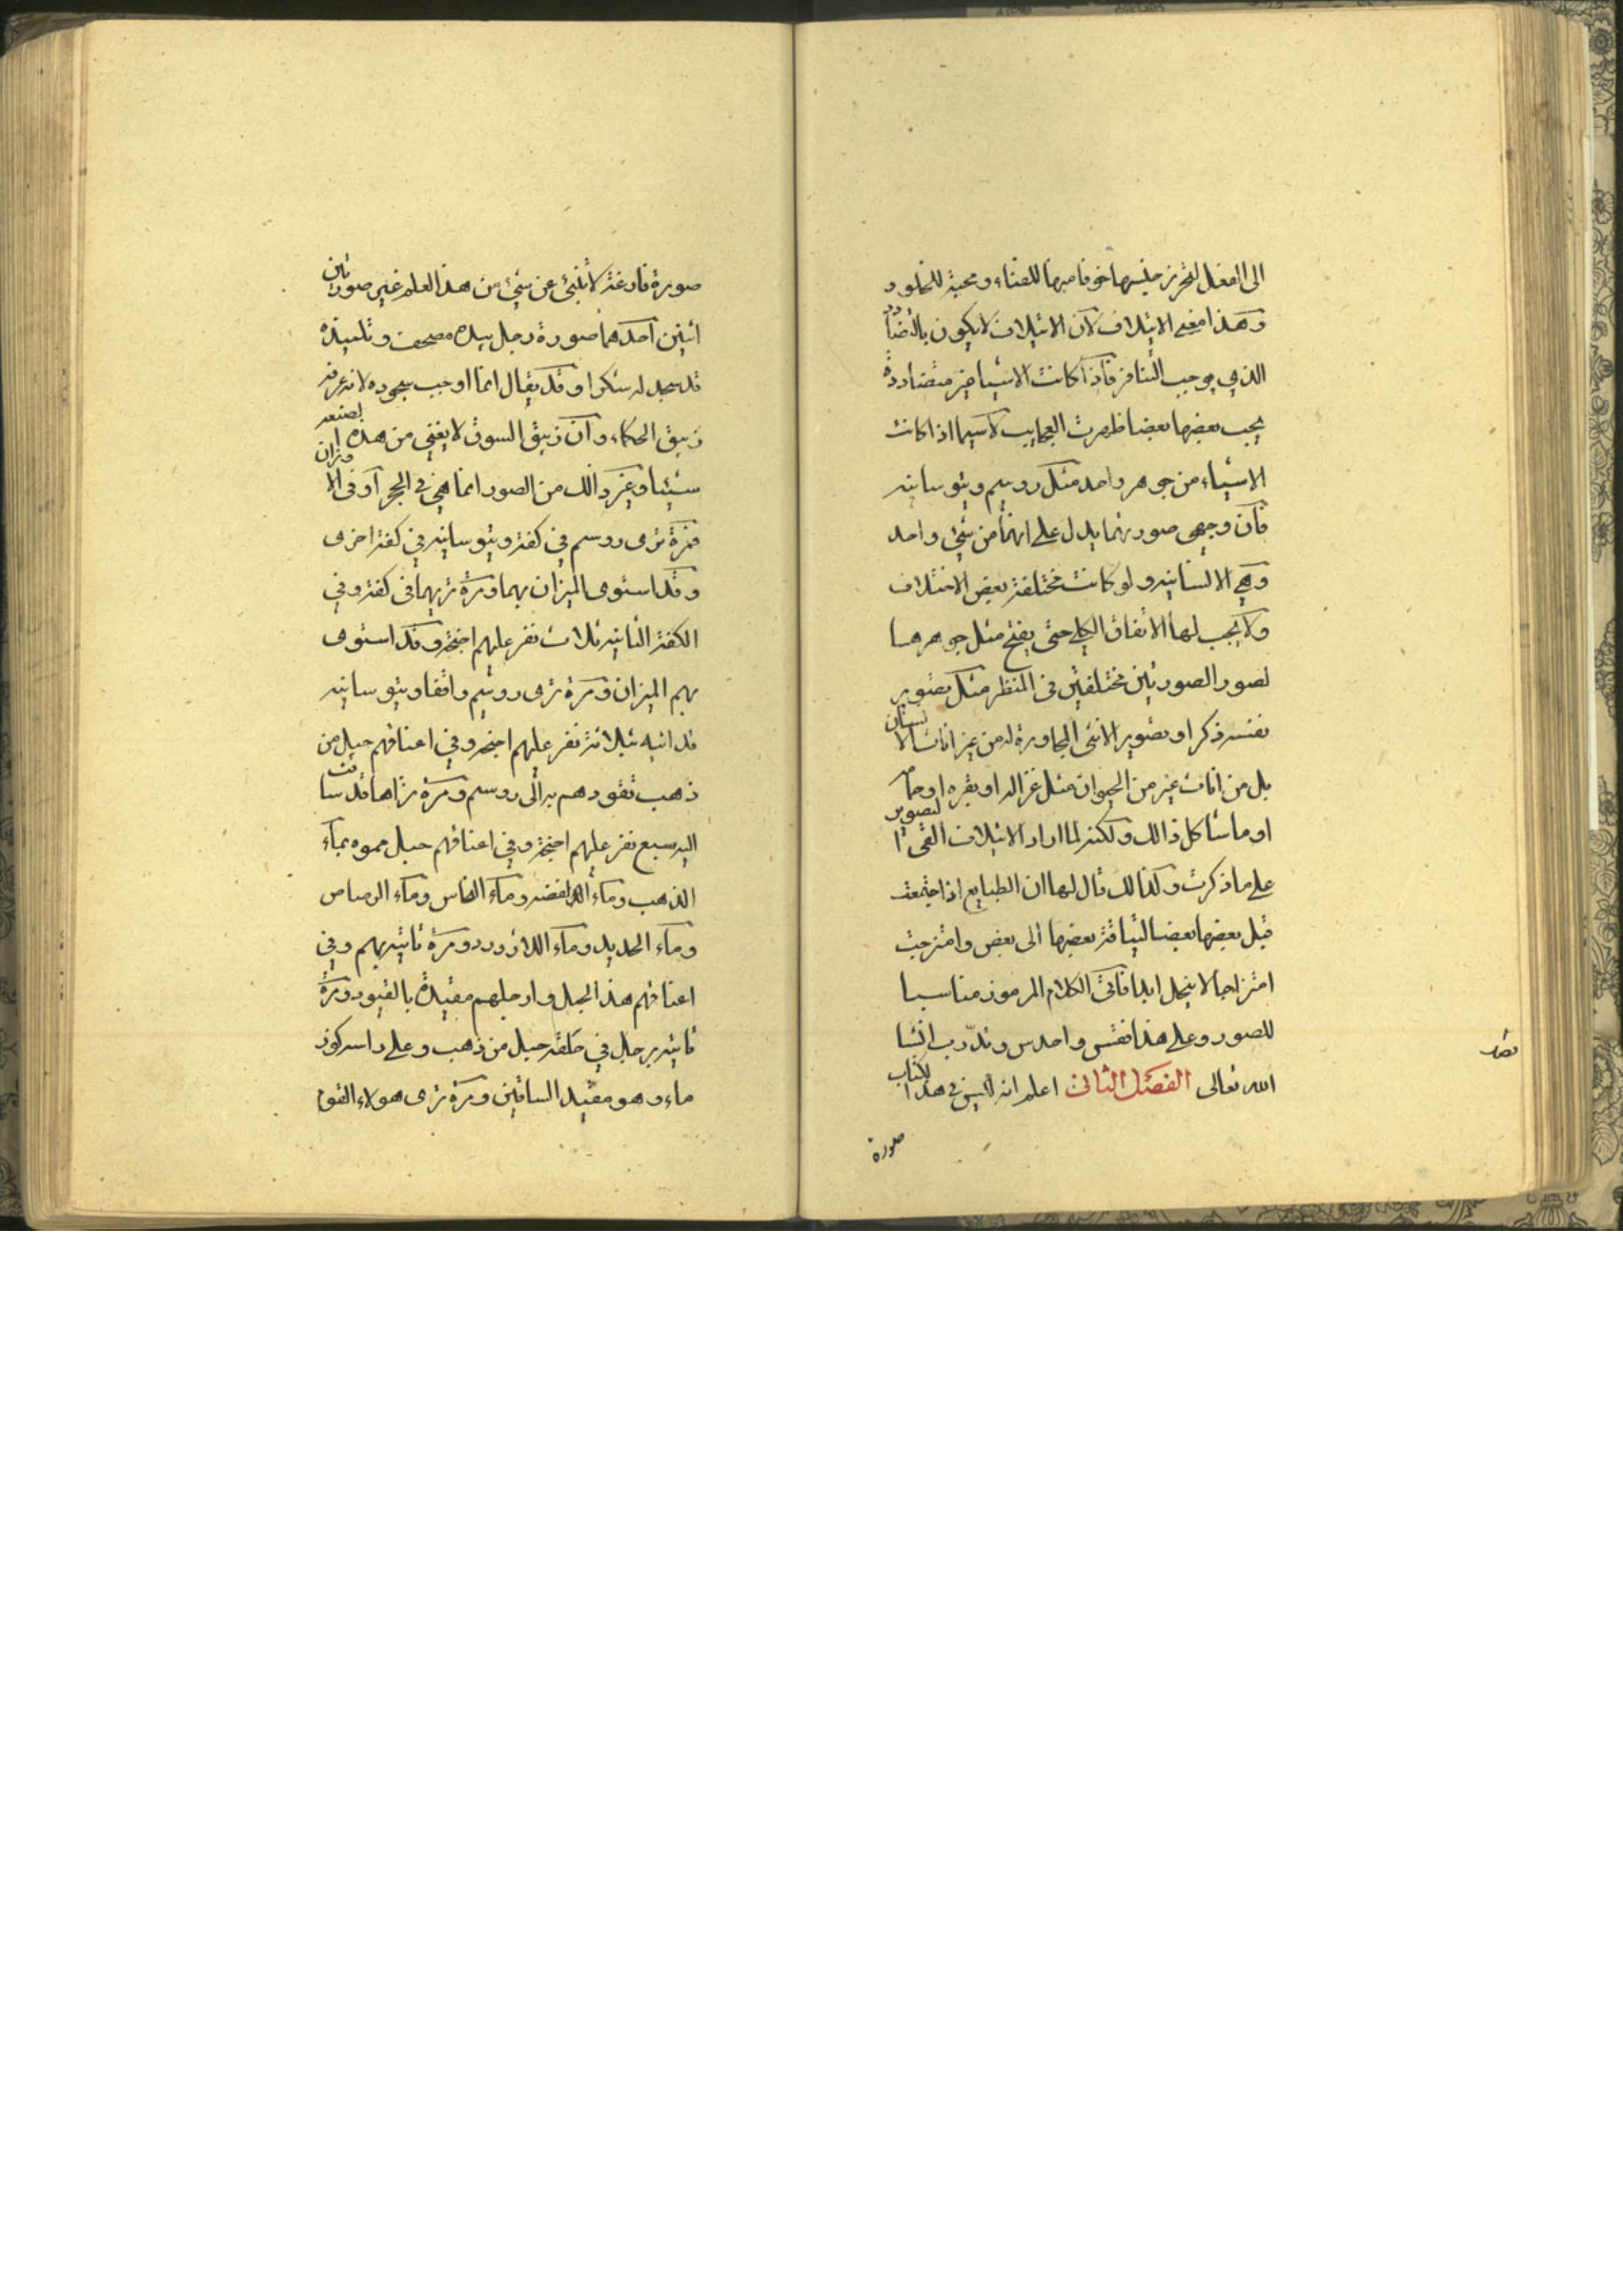 الى الفعل لتحرز جنسها خوفا منها للفناء ومحبة للخلود
وهذا معنى الايتلاف لان الايتلاف لا يكون بالتضادد
الذي يوجب التنافر فاذا كانت الاشيا غير متضاددة
يجب بعضها بعضا ظهرت العجايب لا سيما اذا كانت
الاشياء من جوهر واحد مثل روسم وثوسانيه
فان وجهى صورتهما يدل على انهما من شئ واحد
وهي الانسانيه ولو كانت مختلفة بعض الاختلاف
ولا يجب لها الاتفاق الكلي حتى يفتح مثل جوهرها
لصور الصورتين مختلفتين في المنظر مثل تصوير
نفسه ذكرا وتصوير الانثى المجاورة له من غير اناث الانسان
بل من اناث غيره من الحيوان مثل غزاله او بقره او حمام
او ما شاكل ذالك ولكنه لما اراد الايتلاف القى التصوير
على ما ذكرت وكذالك قال لها ان الطبايع اذا اجتمعت
قبل بعضها بعضا لتياقة بعضها الى بعض وامتزجت
امتزاجا لا ينحل ابدا فاتى الكلام المرموز مناسبا
للصور وعلى هذا فقس واحدس وتدرب انشا
الله تعالى الفصل الثاني اعلم انه ليس في هذا الكتاب
صورة
صورة فارغة لا تنبئ عن شئ من هذا العلم غير صورتين
اثنين احدهما صورة رجل بيده مصحف وتلميذه
قد سجد له شكرا وقد يقال انما اوجب سجوده لانه عرفه
زيبق الحكماء وان زيبق السوق لا يغني من هذه الصنعه
شيئا وغير ذالك من الصور انما هي في الحجر او في الاوزان
فمرة ترى روسم في كفة وثوسانيه في كفة اخرى
وقد استوى الميزان بهما ومرة تريهما في كفة وفي
الكفة الثانيه ثلاث نفر عليهم اجنحة وقد استوى
بهم الميزان ومرة ترى روسم واقفا وثوسانيه
قد اتيه بثلاثة نفر عليهم اجنحه وفي اعناقهم حبل من
ذهب تقودهم به الى روسم ومرة تراها قد ساقت
اليه سبع نفر عليهم اجنحة وفي اعناقهم حبل مموه بمآء
الذهب ومآء الفضه ومآء النحاس ومآء الرصاص
ومآء الحديد ومآء اللازورد ومرة تاتيه بهم وفي
اعناقهم هذا الحبل وارجلهم مقيدة بالقيود ومرة
تاتيه برجل في حلقه حبل من ذهب وعلى راسه كوز
ماء وهو مقيد الساقين ومرة ترى هولاء القوم